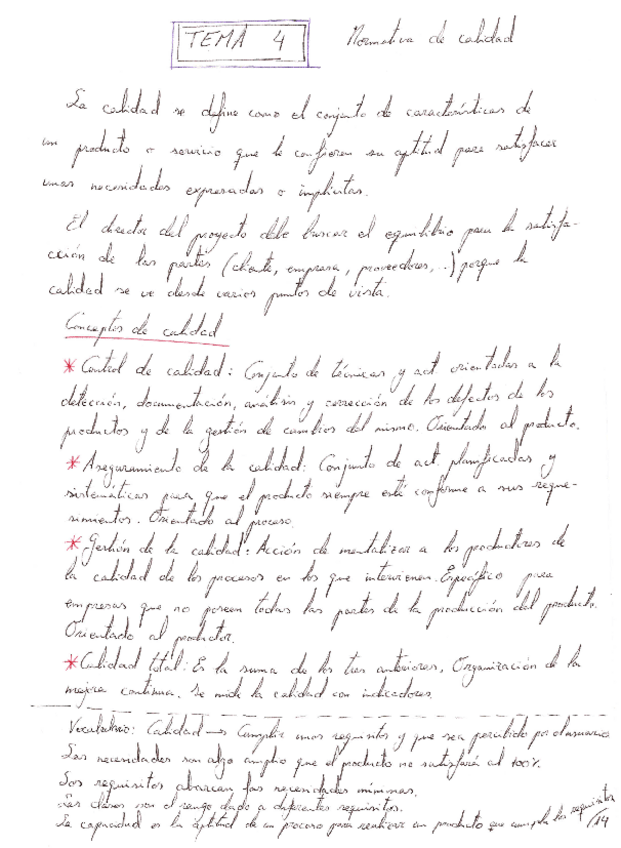 TEMA 4 Normativa de calidad
La calidad se define como el conjunto de características de
un producto o servicio que le confieren su aptitud para satisfacer
unas necesidades expresadas o implícitas.
El director del proyecto debe buscar el equilibrio para la satisfa-
cción de las partes (cliente, empresa, proveedores,..) porque la
calidad se ve desde varios puntos de vista.
Conceptos de calidad
* Control de calidad: Conjunto de técnicas y act orientadas a la
detección, documentación, análisis y corrección de los defectos de los
productos y de la gestión de cambios del mismo. Orientado al producto.
* Aseguramiento de la calidad: Conjunto de act. planificadas y
sistemáticas para que el producto siempre esté conforme a sus reque-
rimientos. Orientado al proceso.
* Gestión de la calidad: Acción de mentalizar a los productores de
la calidad de los procesos en los que intervienen. Específico para
empresas que no poseen todas las partes de la producción del producto.
Orientado al productor.
* Calidad total: Es la suma de los tres anteriores. Organización de la
mejora continua. Se mide la calidad con indicadores.
Vocabulario: Calidad → Cumplir unos requisitos y que sea percibido por el usuario
Las necesidades son algo amplio que el producto no satisfará al 100%.
Los requisitos abarcan las necesidades mínimas.
Las clases son el rango dado a diferentes requisitos.
La capacidad es la aptitud de un proceso para realizar un producto que cumpla los requisitos
/14